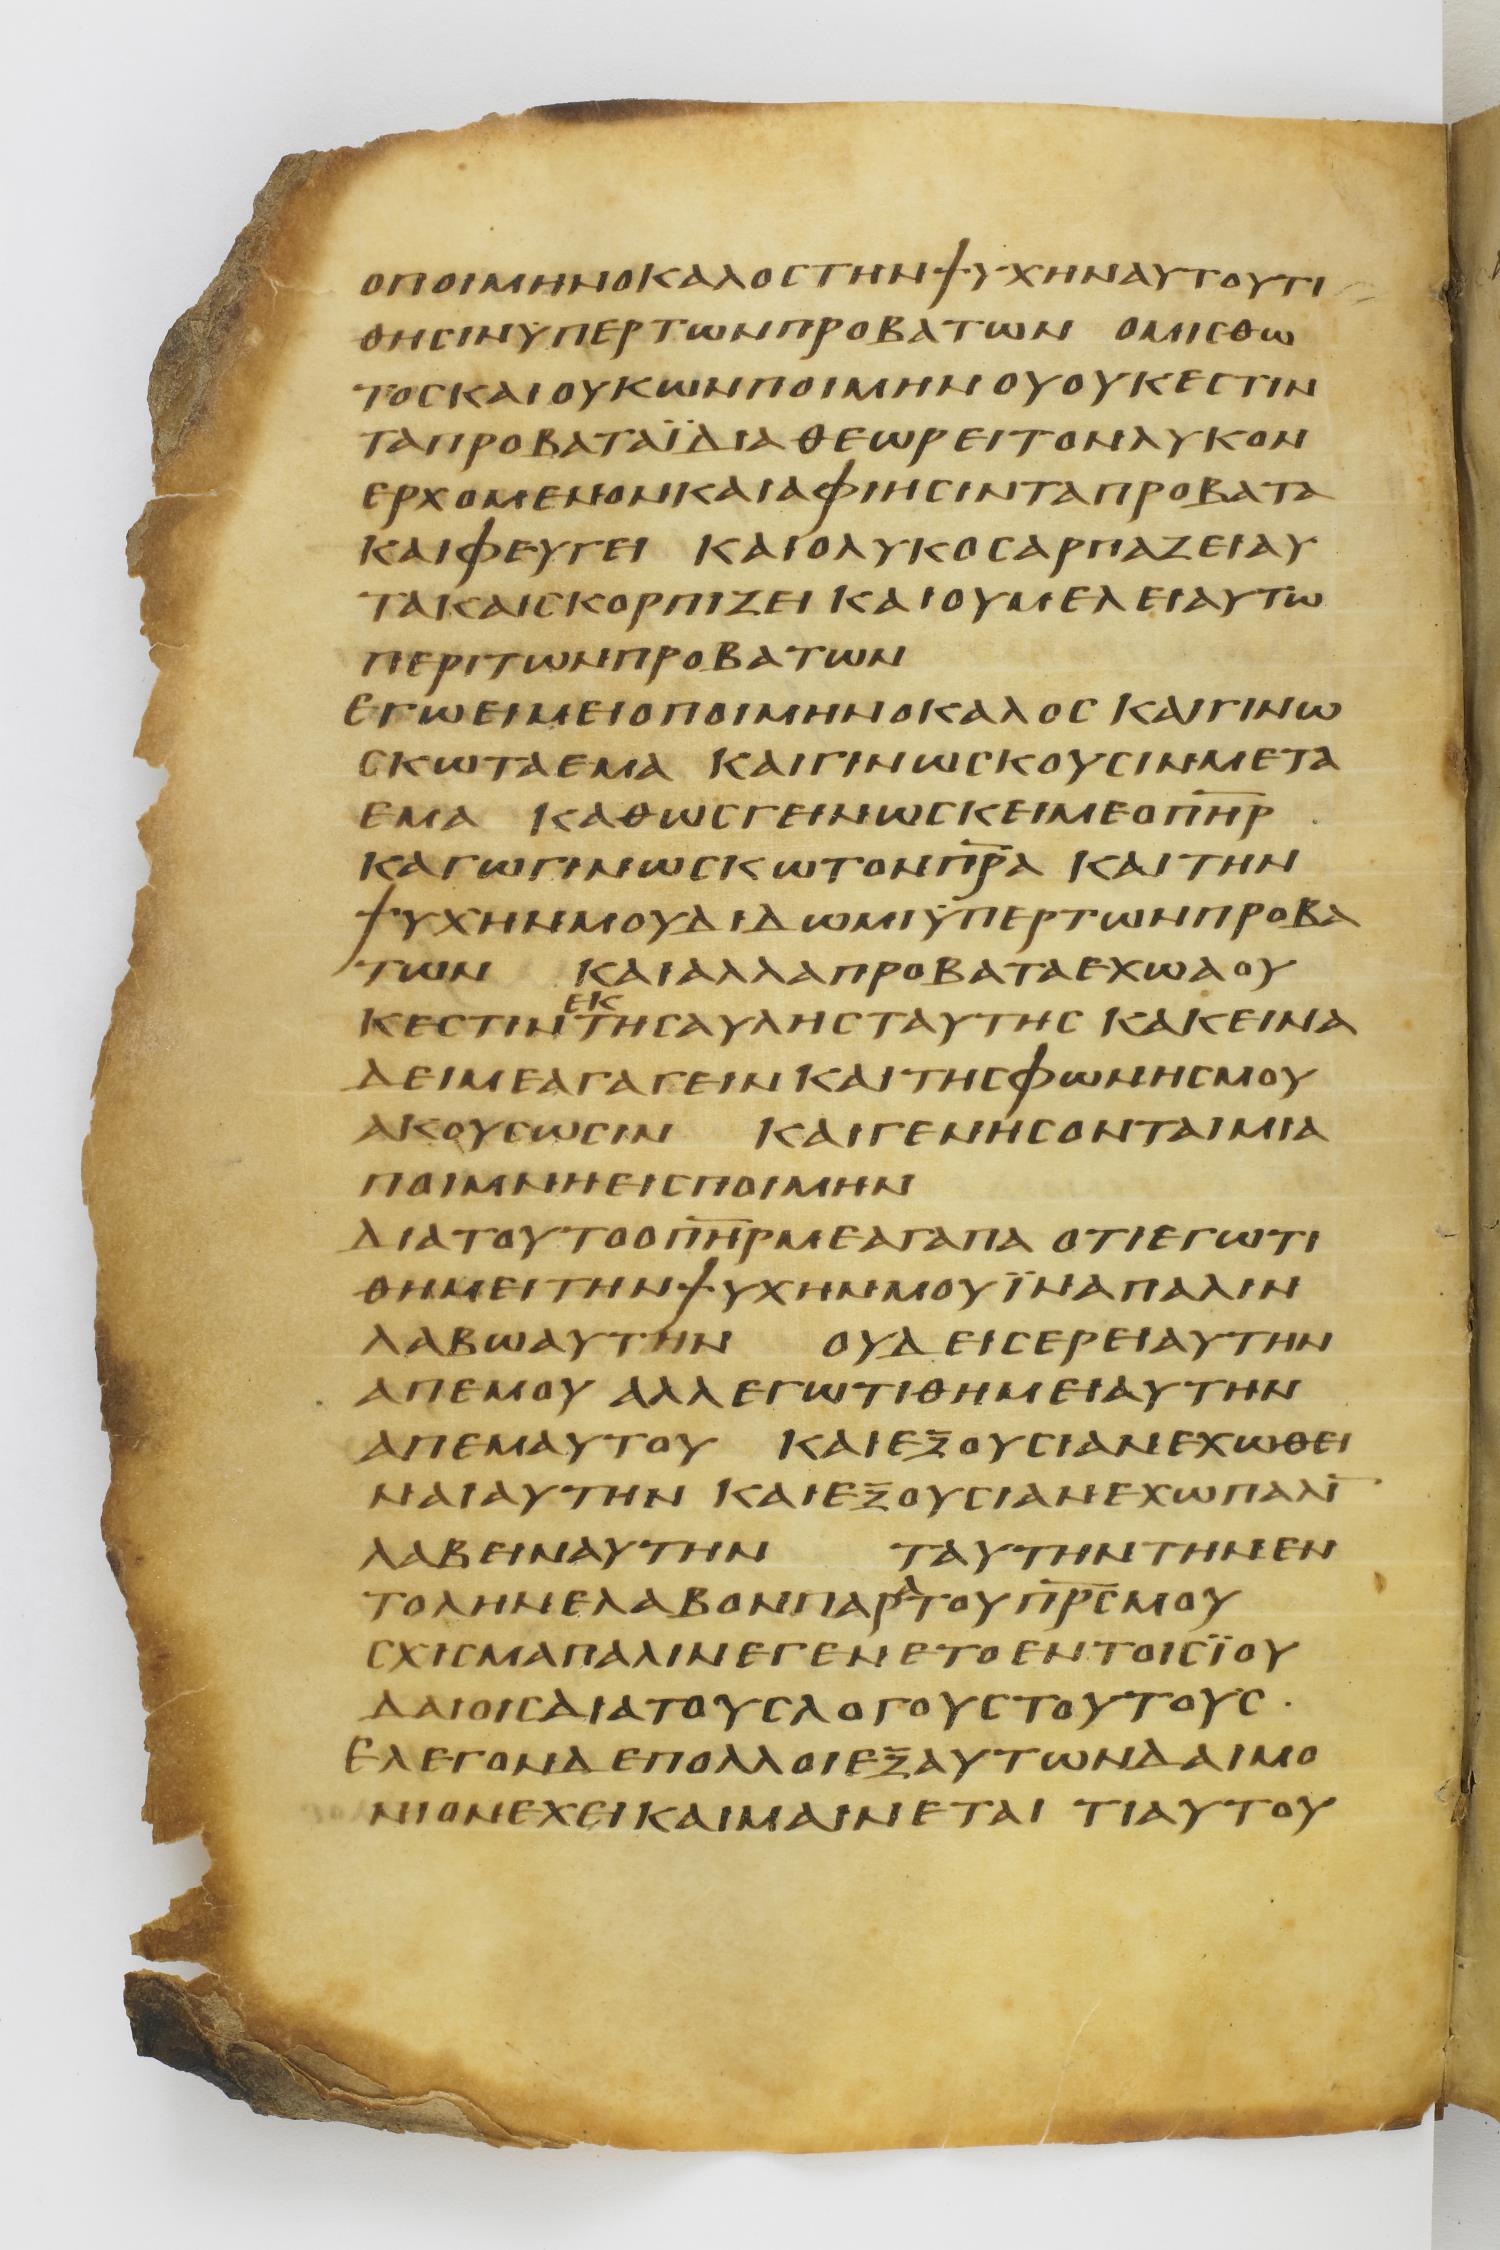 ΟΠΟΙΜΗΝΟΚΑΛΟΣΤΗΝΨΥΧΗΝΑΥΤΟΥΤΙ
ΘΗΣΙΝΫΠΕΡΤΩΝΠΡΟΒΑΤΩΝ ΟΜΙΣΘΩ
ΤΟΣΚΑΙΟΥΚΩΝΠΟΙΜΗΝΟΥΟΥΚΕΣΤΙΝ
ΤΑΠΡΟΒΑΤΑΪΔΙΑΘΕΩΡΕΙΤΟΝΛΥΚΟΝ
ΕΡΧΟΜΕΝΟΝΚΑΙΑΦΙΗΣΙΝΤΑΠΡΟΒΑΤΑ
ΚΑΙΦΕΥΓΕΙ ΚΑΙΟΛΥΚΟΣΑΡΠΑΖΕΙΑΥ
ΤΑΚΑΙΣΚΟΡΠΙΖΕΙ ΚΑΙΟΥΜΕΛΕΙΑΥΤΩ
ΠΕΡΙΤΩΝΠΡΟΒΑΤΩΝ
ΕΓΩΕΙΜΕΙΟΠΟΙΜΗΝΟΚΑΛΟΣ ΚΑΙΓΙΝΩ
ΣΚΩΤΑΕΜΑ ΚΑΙΓΙΝΩΣΚΟΥΣΙΝΜΕΤΑ
ΕΜΑ ΚΑΘΩΣΓΕΙΝΩΣΚΕΙΜΕΟΠ̅Η̅Ρ̅
ΚΑΓΩΓΙΝΩΣΚΩΤΟΝΠ̅Ρ̅Α̅ ΚΑΙΤΗΝ
ΨΥΧΗΝΜΟΥΔΙΔΩΜΙΫΠΕΡΤΩΝΠΡΟΒΑ
ΤΩΝ ΚΑΙΑΛΛΑΠΡΟΒΑΤΑΕΧΩΑΟΥ
ΚΕΣΤΙΝΕΚΤΗΣΑΥΛΗΣΤΑΥΤΗΣ ΚΑΚΕΙΝΑ
ΔΕΙΜΕΑΓΑΓΕΙΝΚΑΙΤΗΣΦΩΝΗΣΜΟΥ
ΑΚΟΥΣΩΣΙΝ ΚΑΙΓΕΝΗΣΟΝΤΑΙΜΙΑ
ΠΟΙΜΝΗΕΙΣΠΟΙΜΗΝ
ΔΙΑΤΟΥΤΟΟΠ̅Η̅Ρ̅ΜΕΑΓΑΠΑ ΟΤΙΕΓΩΤΙ
ΘΗΜΕΙΤΗΝΨΥΧΗΝΜΟΥΪΝΑΠΑΛΙΝ
ΛΑΒΩΑΥΤΗΝ ΟΥΔΕΙΣΕΡΕΙΑΥΤΗΝ
ΑΠΕΜΟΥ ΑΛΛΕΓΩΤΙΘΗΜΕΙΑΥΤΗΝ
ΑΠΕΜΑΥΤΟΥ ΚΑΙΕΞΟΥΣΙΑΝΕΧΩΘΕΙ
ΝΑΙΑΥΤΗΝ ΚΑΙΕΞΟΥΣΙΑΝΕΧΩΠΑΛΙ̅
ΛΑΒΕΙΝΑΥΤΗΝ ΤΑΥΤΗΝΤΗΝΕΝ
ΤΟΛΗΝΕΛΑΒΟΝΠΑΡΑΤΟΥΠ̅Ρ̅Σ̅ΜΟΥ
ΣΧΙΣΜΑΠΑΛΙΝΕΓΕΝΕΤΟΕΝΤΟΙΣΪΟΥ
ΔΑΙΟΙΣΔΙΑΤΟΥΣΛΟΓΟΥΣΤΟΥΤΟΥΣ.
ΕΛΕΓΟΝΔΕΠΟΛΛΟΙΕΞΑΥΤΩΝΔΑΙΜΟ
ΝΙΟΝΕΧΕΙΚΑΙΜΑΙΝΕΤΑΙ ΤΙΑΥΤΟΥ